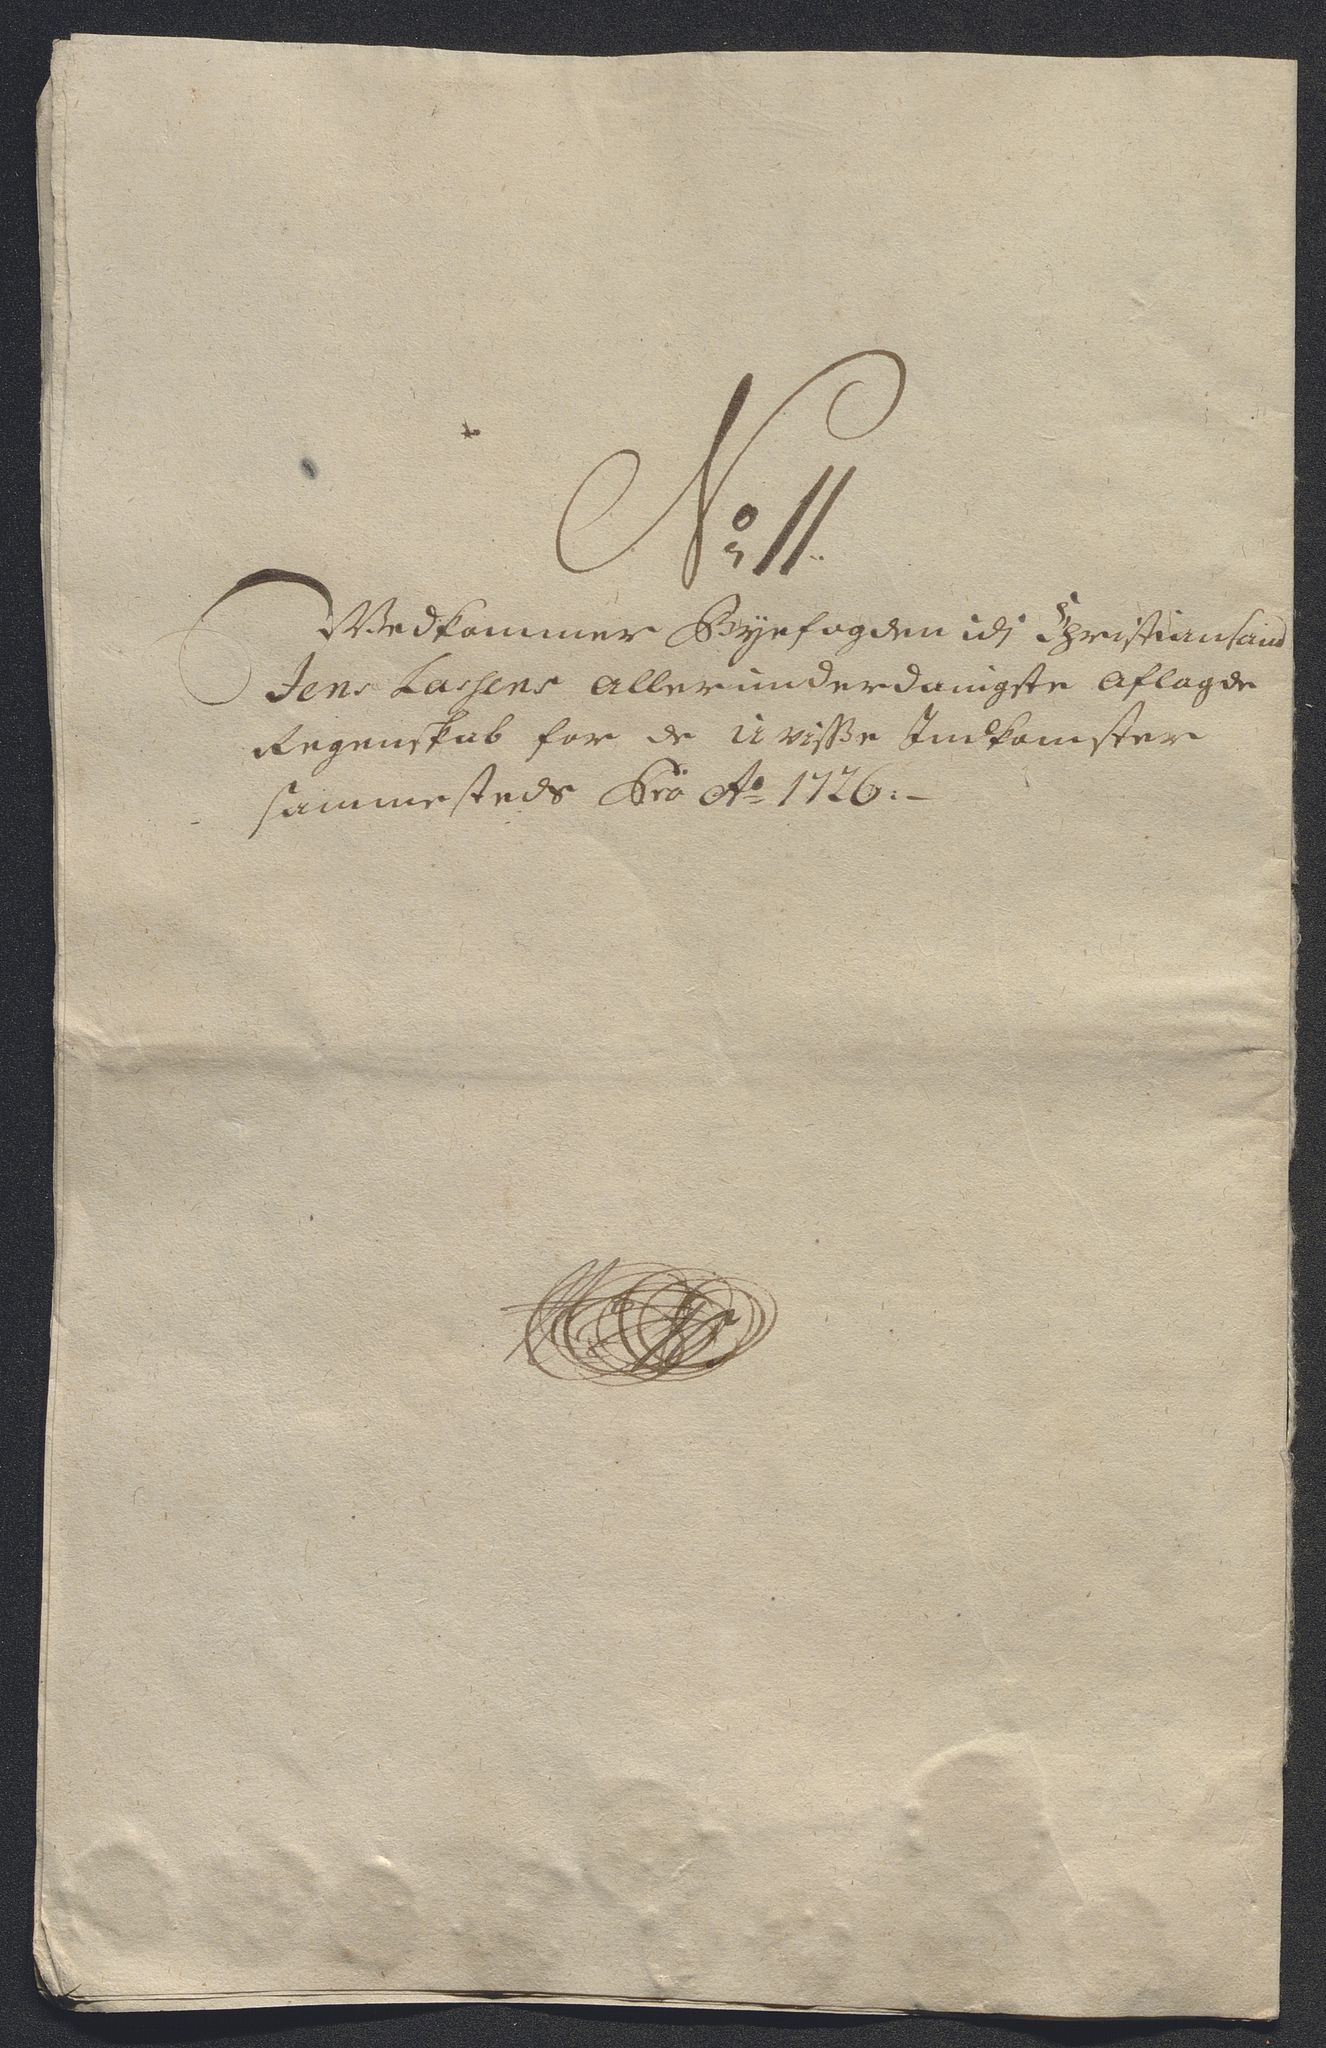 No 11.
Vedkommer Byefogden udj Christiansand
Jens Lassens allerunderdanigste aflagde
Regenskab for de uvisse Indkomster
sammesteds Pro Ao 1726:-